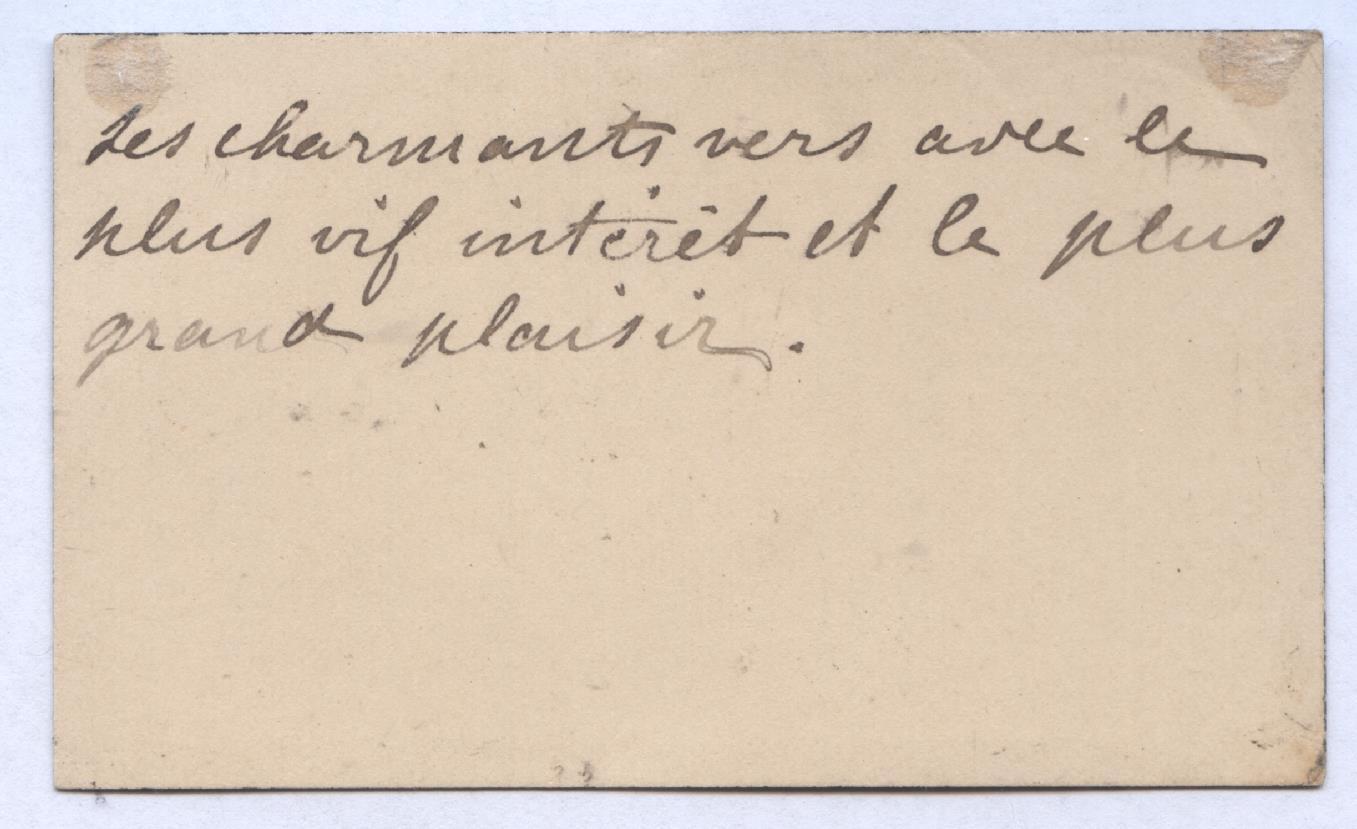 ses charmants vers avec le
plus vif intérêt et le plus
grand plaisir.